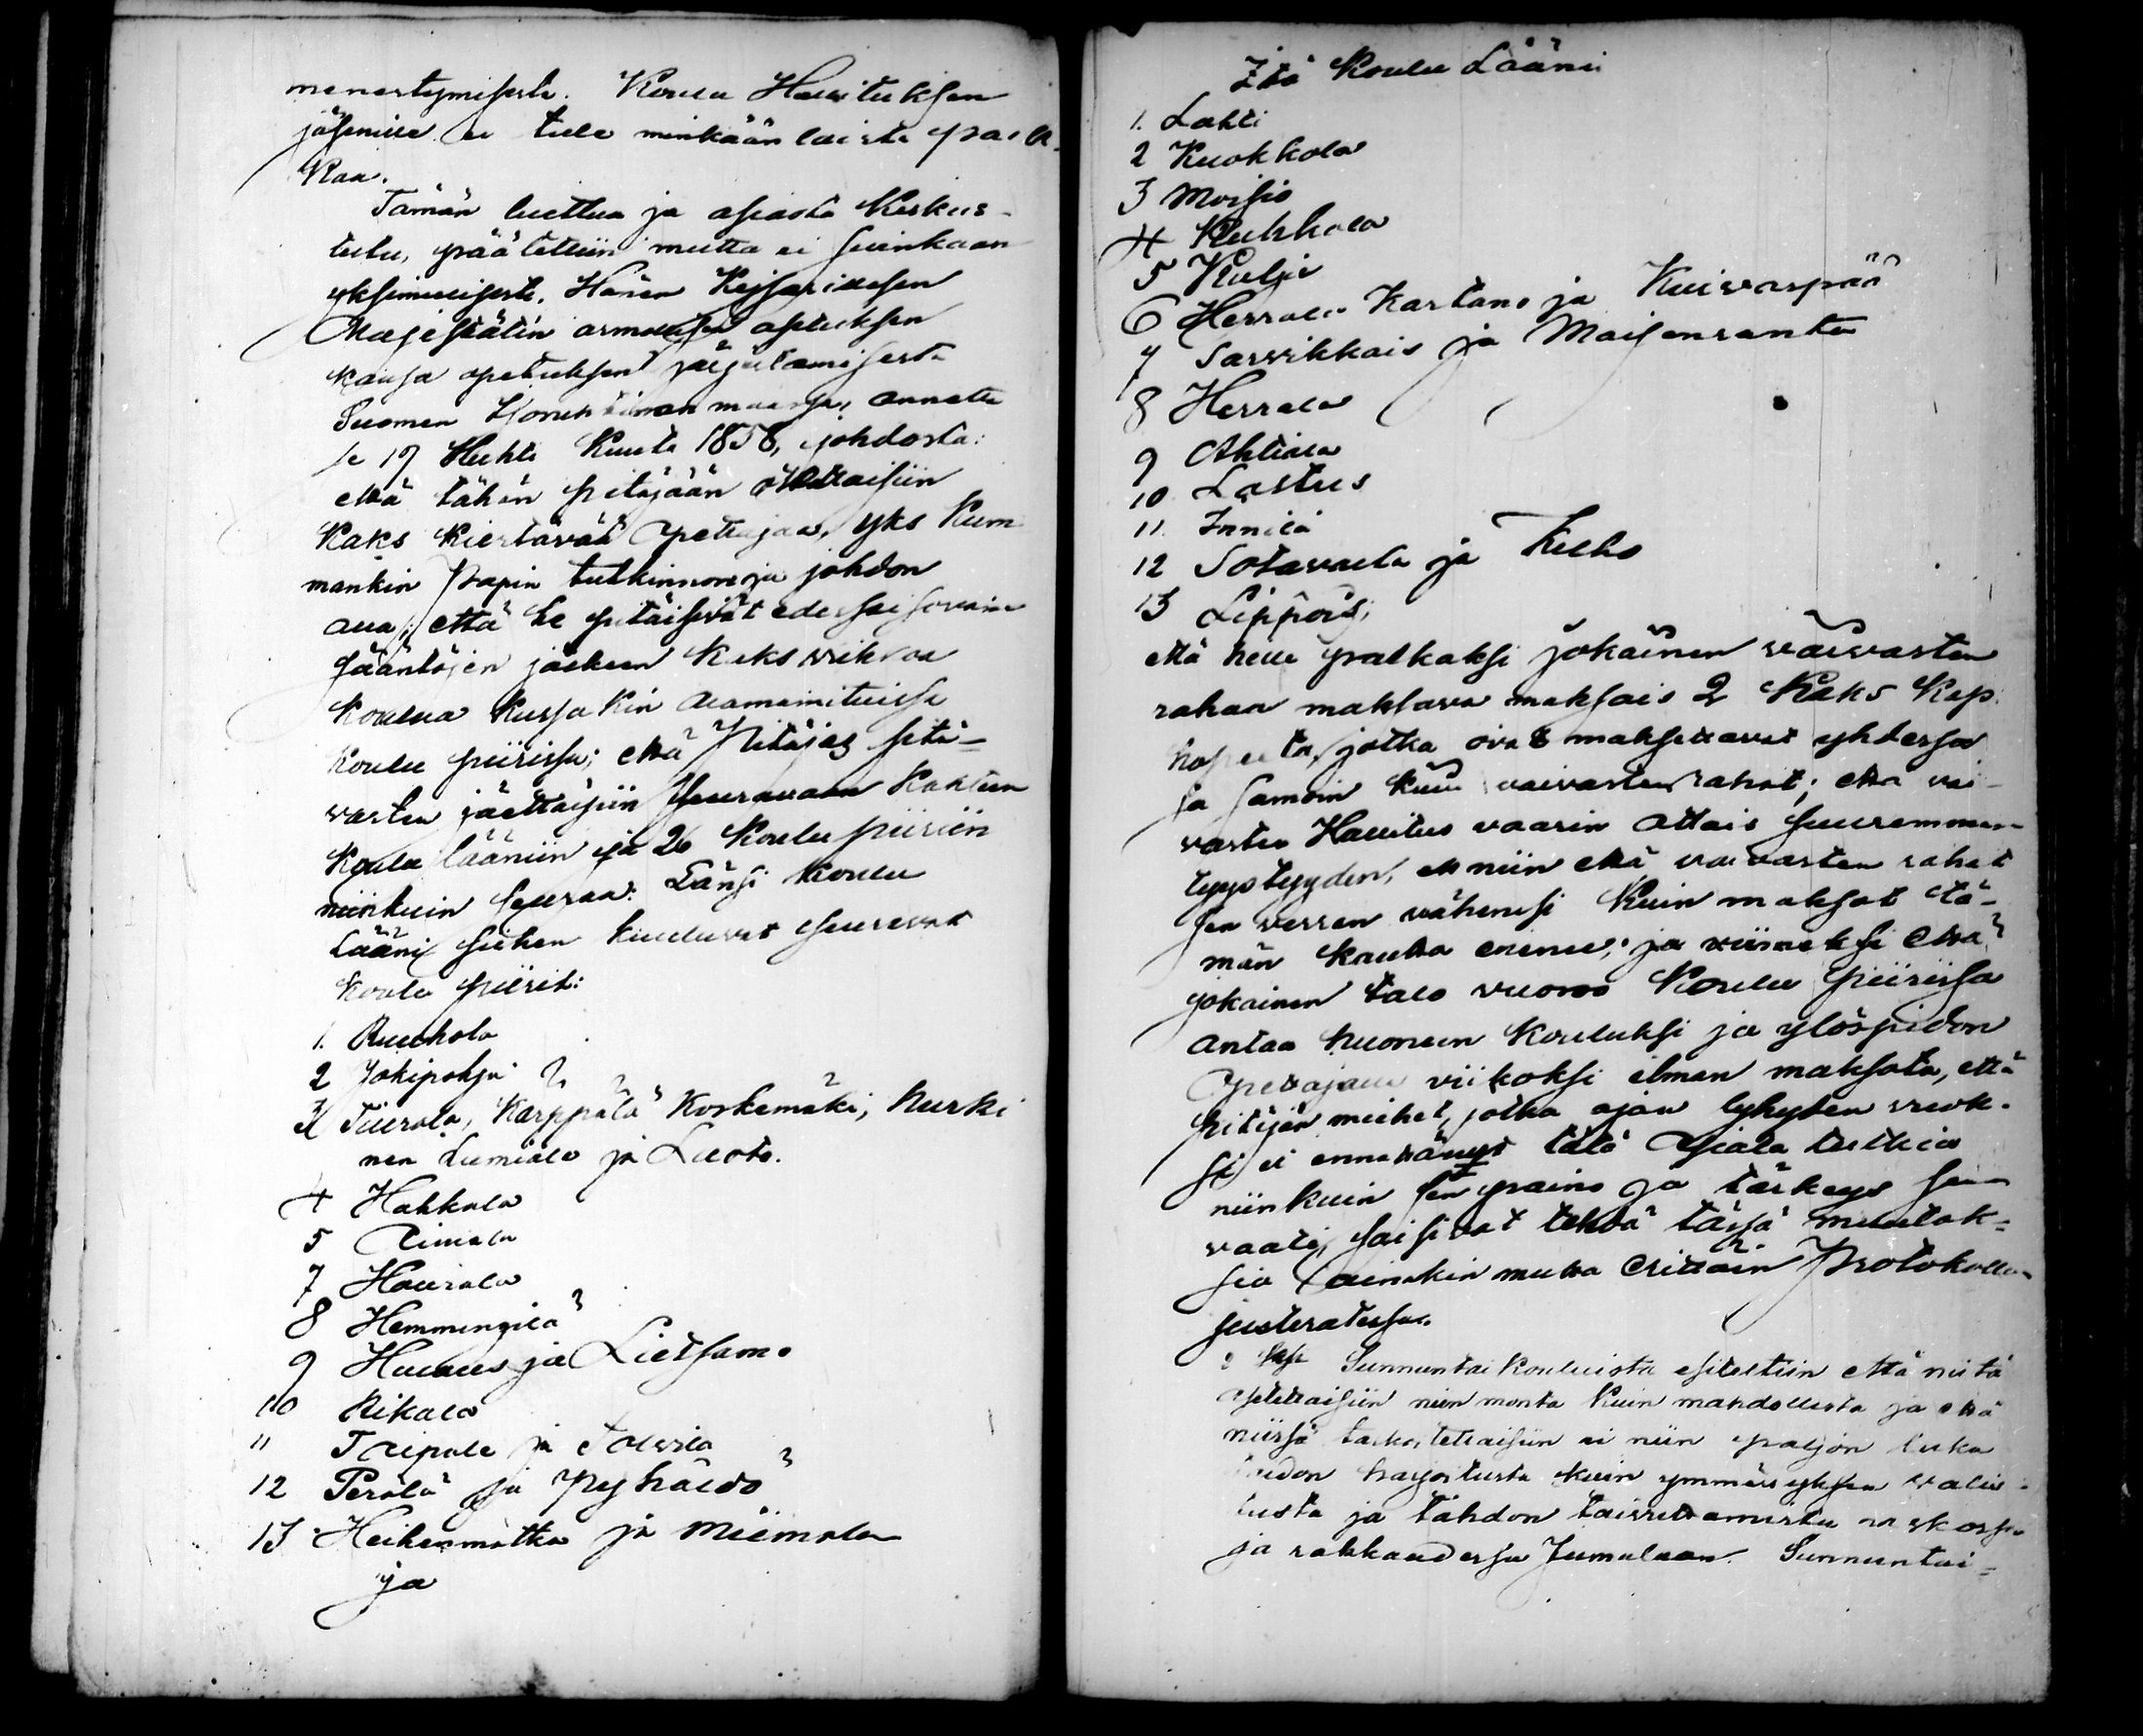 menestymisestä. Koulu Hallituksen
jäsenille ei tule minkäänlaista palk-
kaa.
Tämän luettua ja asiasta Keskus-
teltu, päätettiin mutta ei suinkaan
yksimielisesti, Hänen Kejsarillisen
Majestätin armollisen asetuksen
kansa opetuksen järjestämisestä
Suomen Suuriruhtinan maassa, annettu
se 19 Huhti Kuuta 1858, johdosta:
että tähän pitäjään otettaisiin
Kaks Kiertävää Opettajaa, yks Kum
mankin Papin tutkinnon ja johdon
alla; että he pitäisivät
sääntöjen jälkeen Kaks viikkoa
Koulua kussakin allamainituissa
Koulu piirissä; että Pitäjäs sitä-
varten jaettaisiin seuraavaan Kahteen
Koulu lääniin ja 26 Koulu piiriin
niinkuin seuraa: Länsi Koulu
Lääni siihen kuuluvat seuraavat
Koulu piirit:
1. Ruuhola
2 Jokipohja
3 Tiirola, Karppala Koskemäki, hurski
nen Lumiala ja Luoto.
4 Hakkala
5
7 Hauvala
8 Hemmingilä
9 ja Lietsamo
10 Rikala
11 Taipale ja
12 Perälä ja Pyhäldö
13 Heikenmätka ja Miemala
ja
Itä Koulu Lääni
1. Lahti
2 Kuokkola
3 Moisio
4 Kukkola
5 Kulje
6 Herrala Kartano ja Kuivaspää
7 Sarvikkais ja Maisenranta
8 Herrala
9 Ahtiala
10 Lastus
11. Innilä
12 Sotavalta ja
13
että heille palkaksi jokainen vaivasten
rahan maksava maksais 2 Kaks Kop.
hopeeta, jotka ovat maksettavat yhdessä
ja samoin kuin vaivasten rahat; että vai-
vasten Hallitus vaarin ottais suuremman
tyystyyden, niin että vaivasten rahat
sen verran vähenisi Kuin maksot tä-
män kautta enenee; ja viimeksi että
jokainen talo vuoroo Koulu piirissä
antaa huoneen Kouluksi ja ylöspidon
Opettajalle viikoksi ilman maksota, että
pitäjän miehet, jotka ajan lyhyden vuok-
si ei ennättänyt tätä Asiata tutkia
niinkuin sen paino ja tärkeys sen
vaati, saisivat tehdä tässä muutok-
sia ainakin mutta erittäin Protokolla
justeratessa.
2 Sunnuntai Kouluista esiteltiin että niitä
asetettaisiin niin monta Kuin mahdollista ja että
niissä tarkoitettaisiin ei niin paljon luku
taidon harjoitusta kuin ymmärryksen valis-
tusta ja tahdon taivuttamista uskossa
ja rakkaudessa Jumalaan. Sunnuntai-